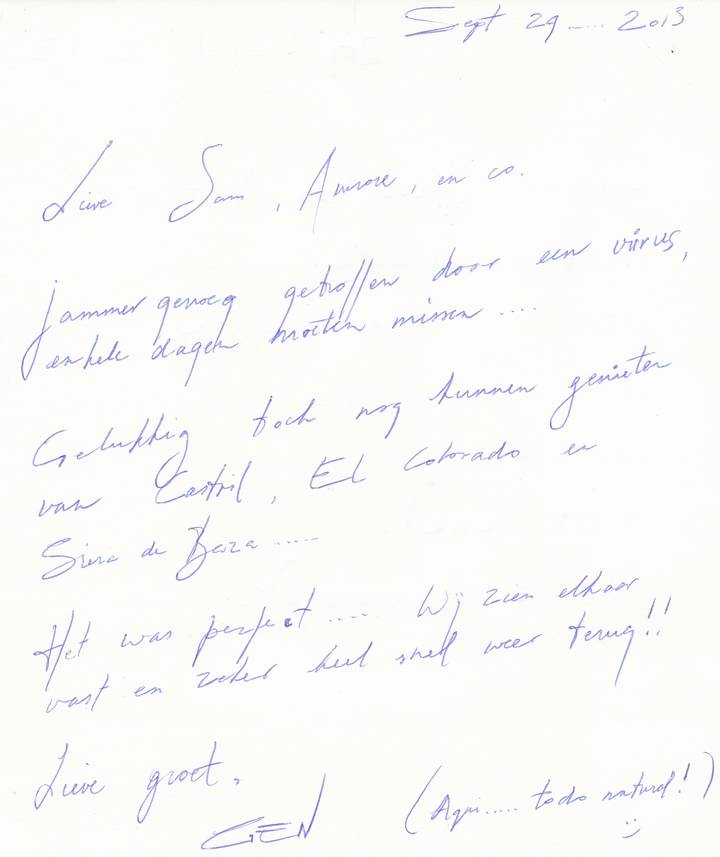 Sept 29 ..... 2013
Lieve Sam, Aurore, en co.
jammer genoeg getroffen door een virus,
enkele dagen moeten missen ....
Gelukkig toch nog kunnen genieten
van Castril, El Colorado en
Siera de Baza .....
Het was perfect .... Wij zien elkaar
vast en zeker heel snel weer terug!!
Lieve groet,
GEN
(Aqui ..... todo natural! )